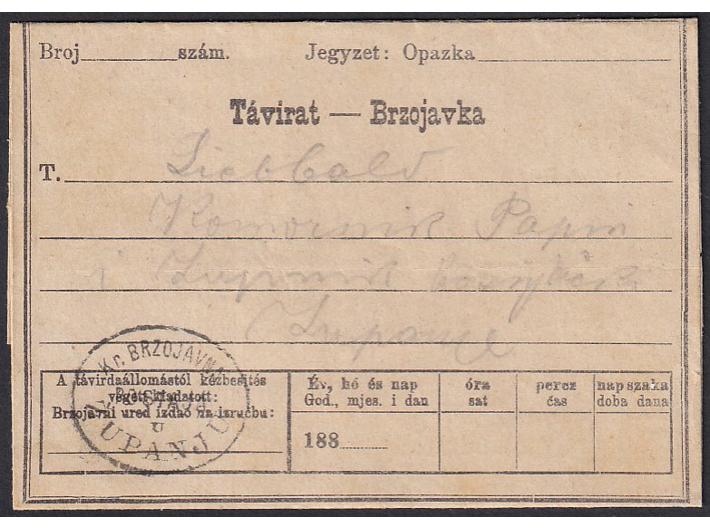 Broj szám. Jegyzet: Opazka
Távirat — Brzojavka
T. Liebbald
Komornik Papin
i Župnik
Županje
Kr. BRZOJAVNA
U
ŽUPANJU
A távirdaállomástól kézbesítés
végett kiadatott:
Brzojavni ured izdao na izručbu:
Év, hó és nap
God., mjes. i dan
188
óra
sat
percz
čas
napszaka
doba dana